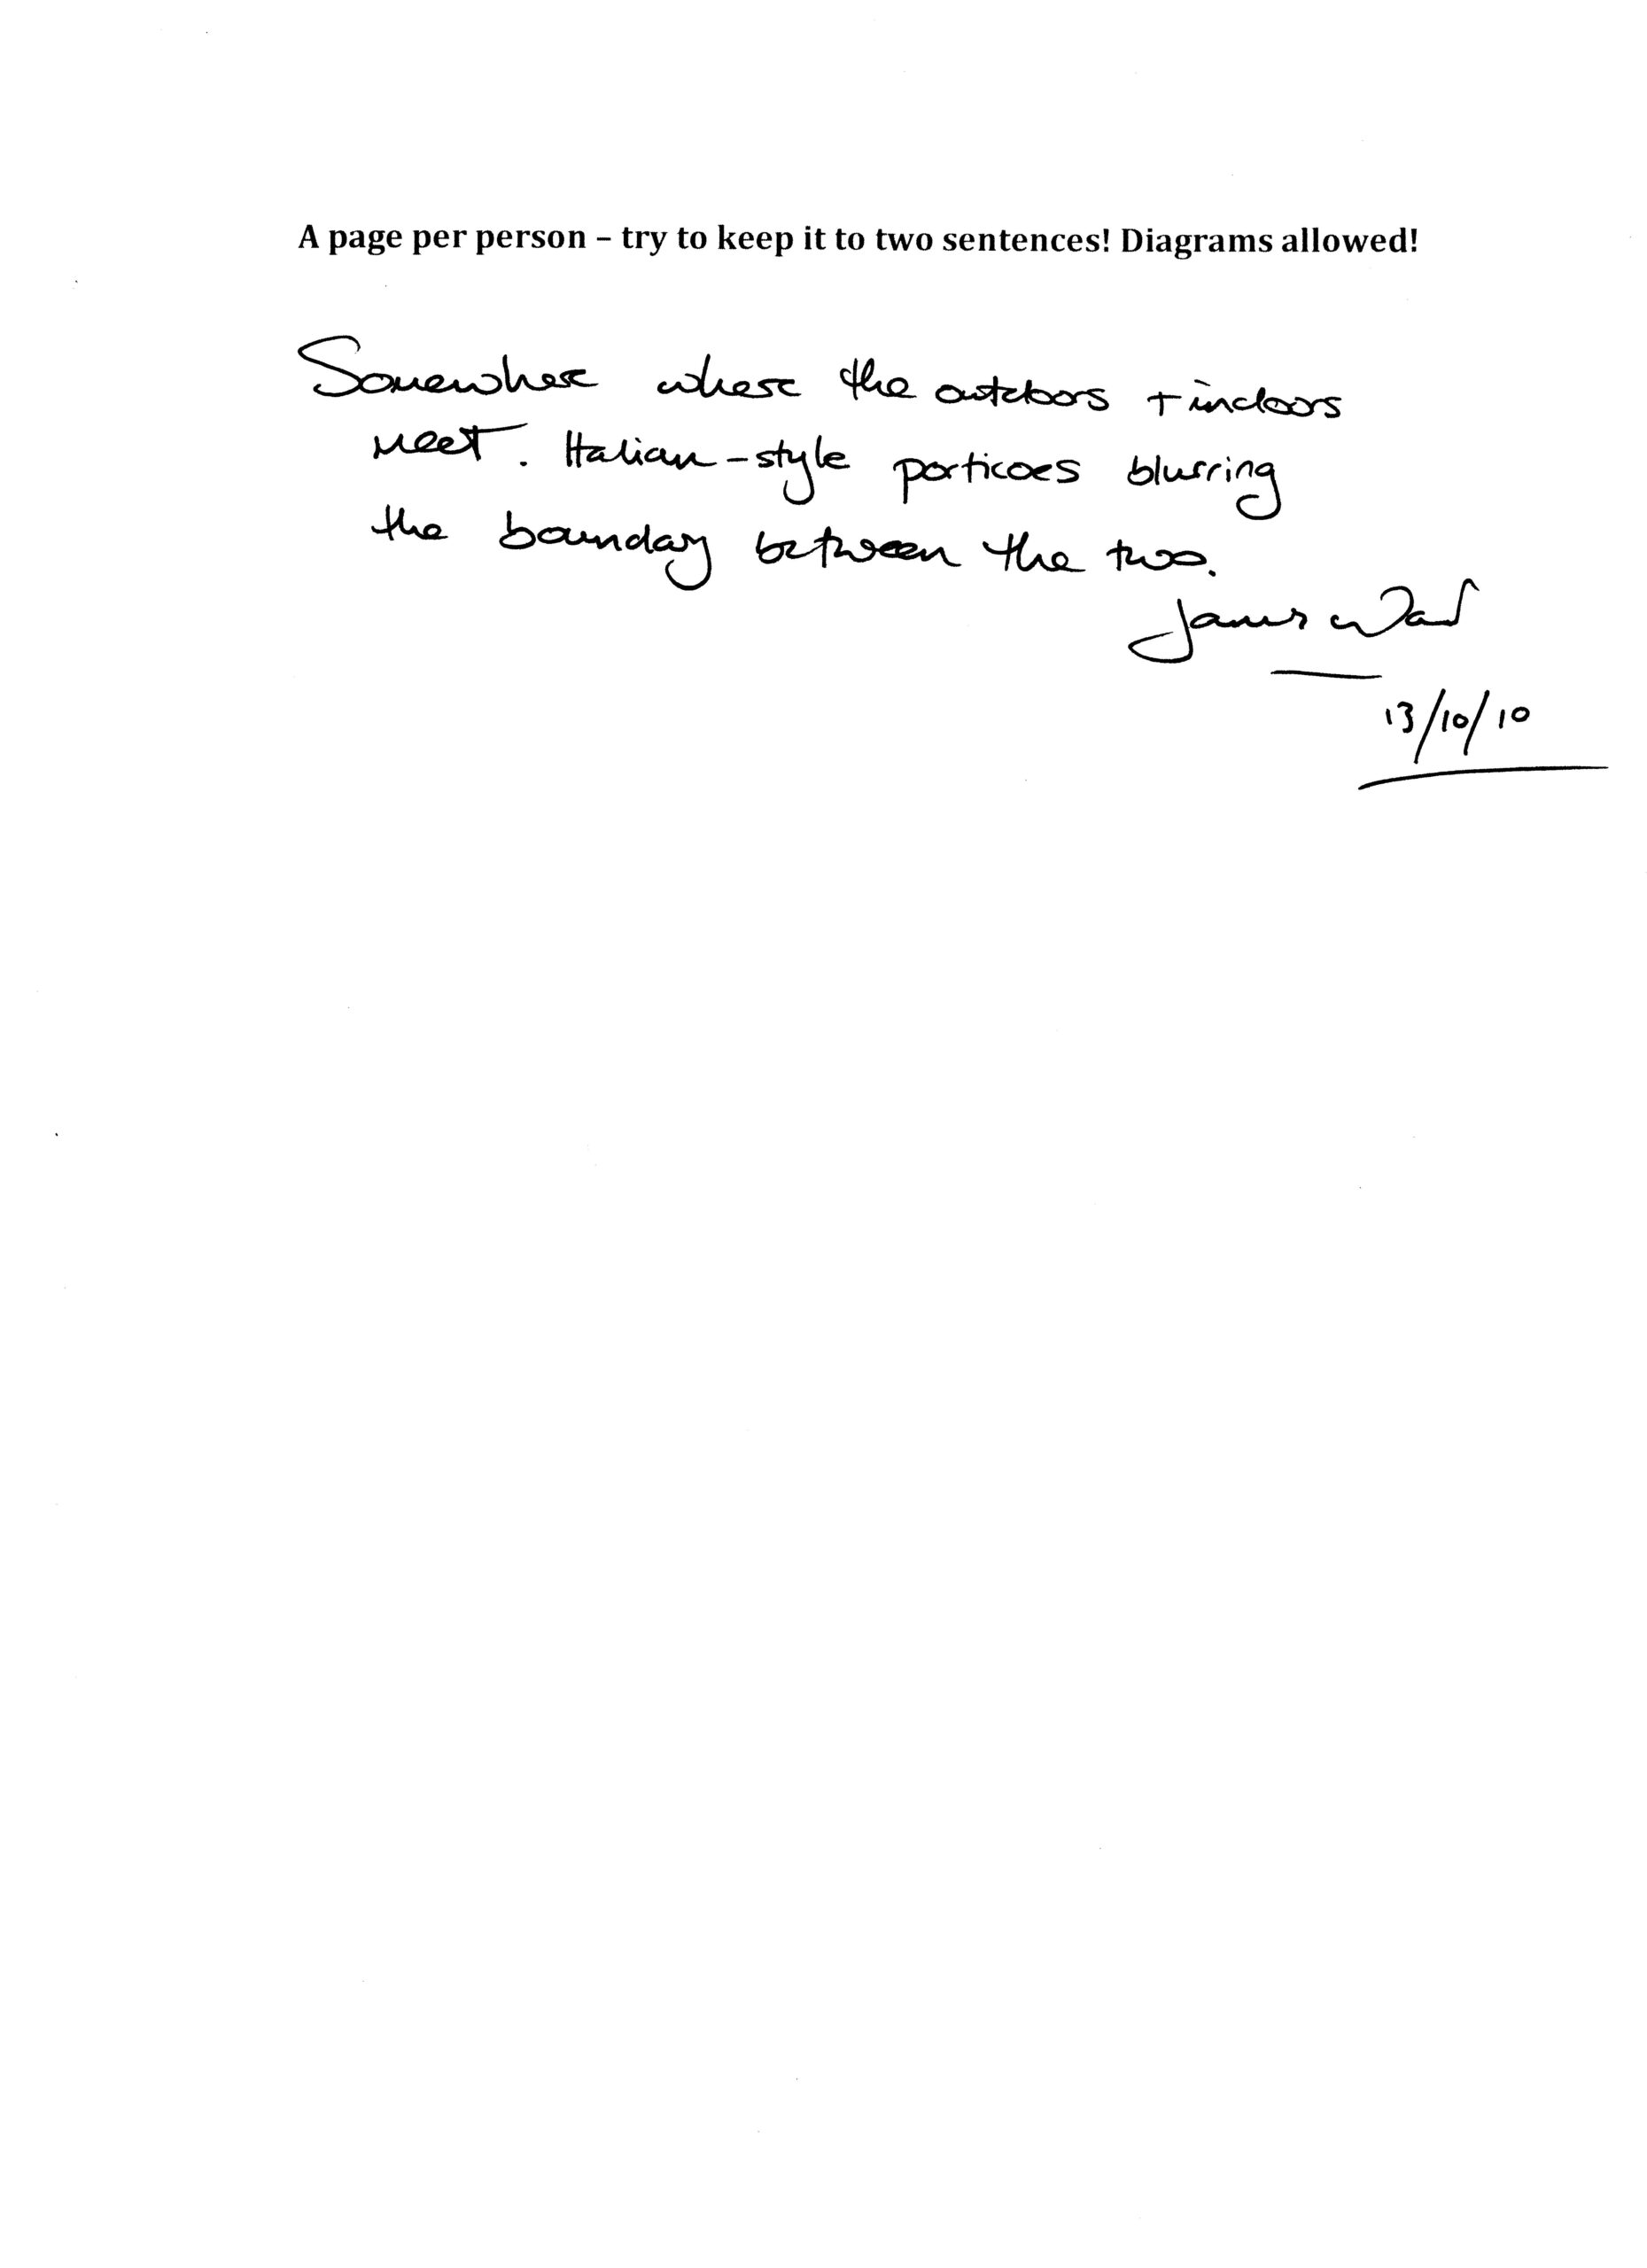 A page per person – try to keep it to two sentences! Diagrams allowed!
Somewhere where the outdoors + indoors
meet. Italian-style porticoes blurring
the boundary between the two.
James
13/10/10